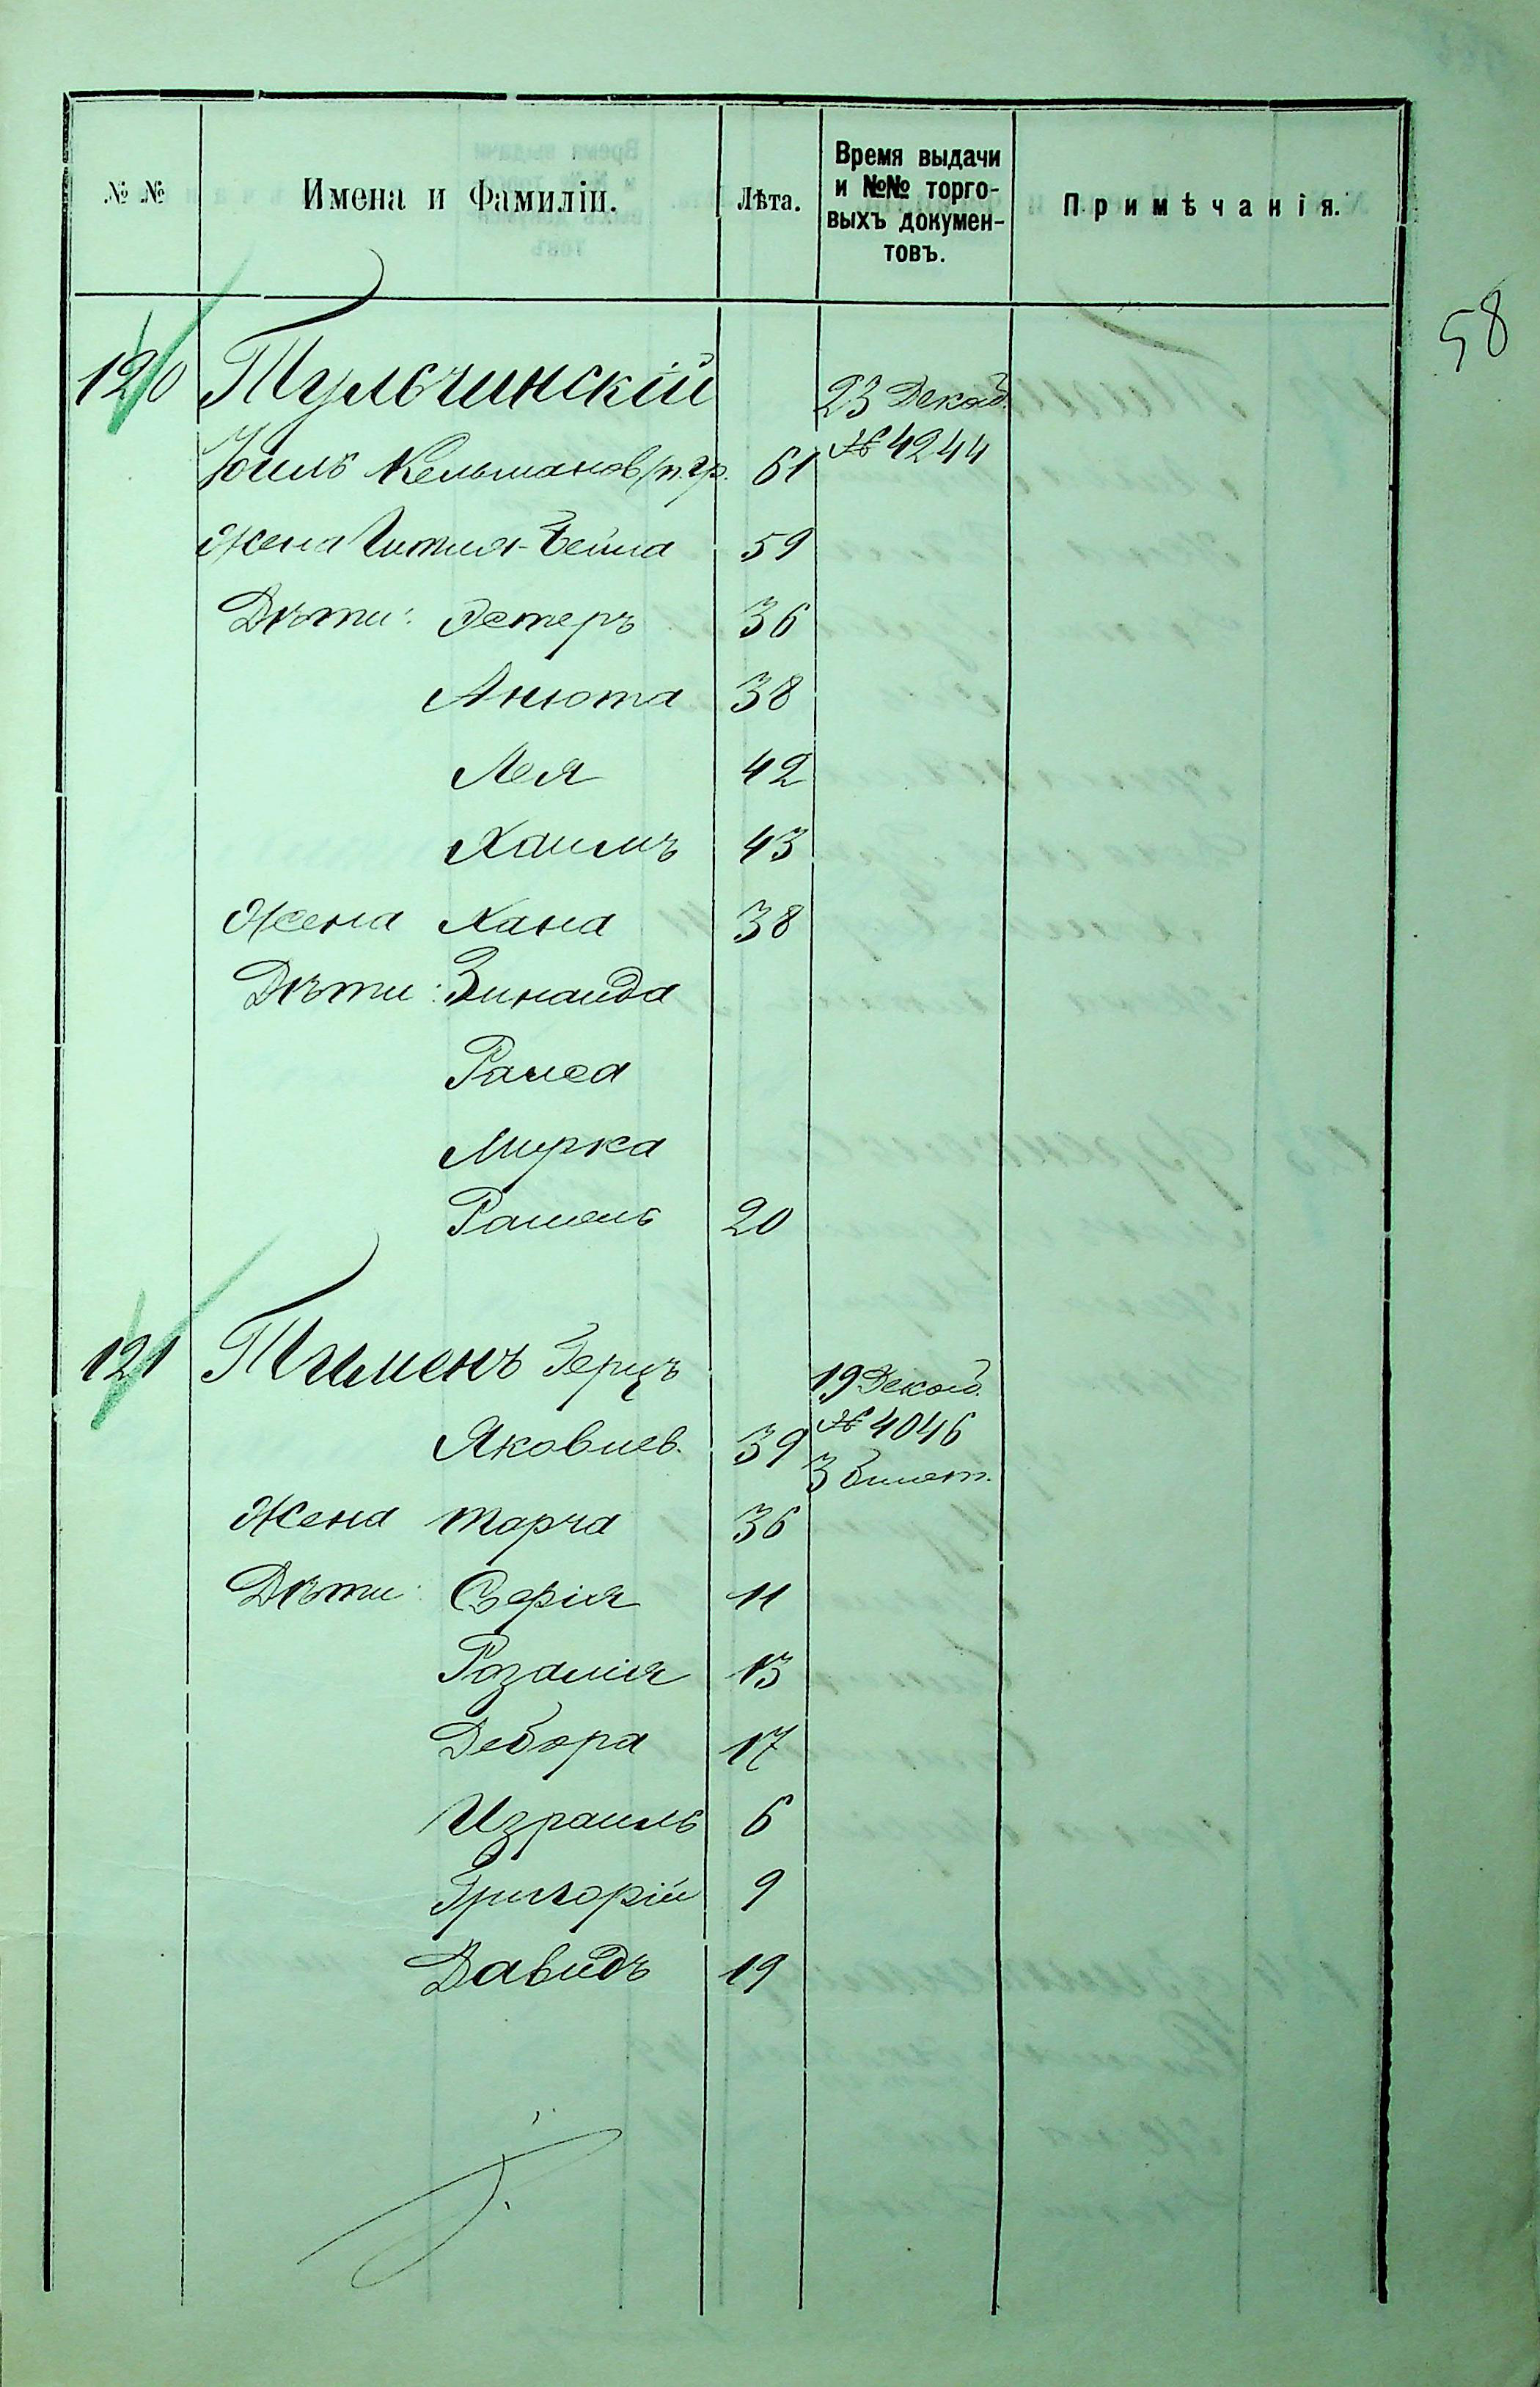 58
№ № Имена и Фамиліи. Лѣта. Время выдачи и №№ торго-выхъ докумен-товъ. Примѣчанія.
120 Тульчинскій 23 Декаб.
Юиль Кельманов. п. гр. 61 № 4244
Жена Гитля-Бейла 59
Дѣти: Эстеръ 36
Анюта 38
Лея 42
Хаимъ 43
Жена Хана 38
Дѣти: Зинаида
Раиса
Мирка
Рашель 20
121 Герцъ 19 Декаб.
Яковлев. 39 № 4046
3 билет.
Жена 36
Дѣти: 11
Розалія 13
Дебора 17
Израиль 6
Григорій 9
Давидъ 19